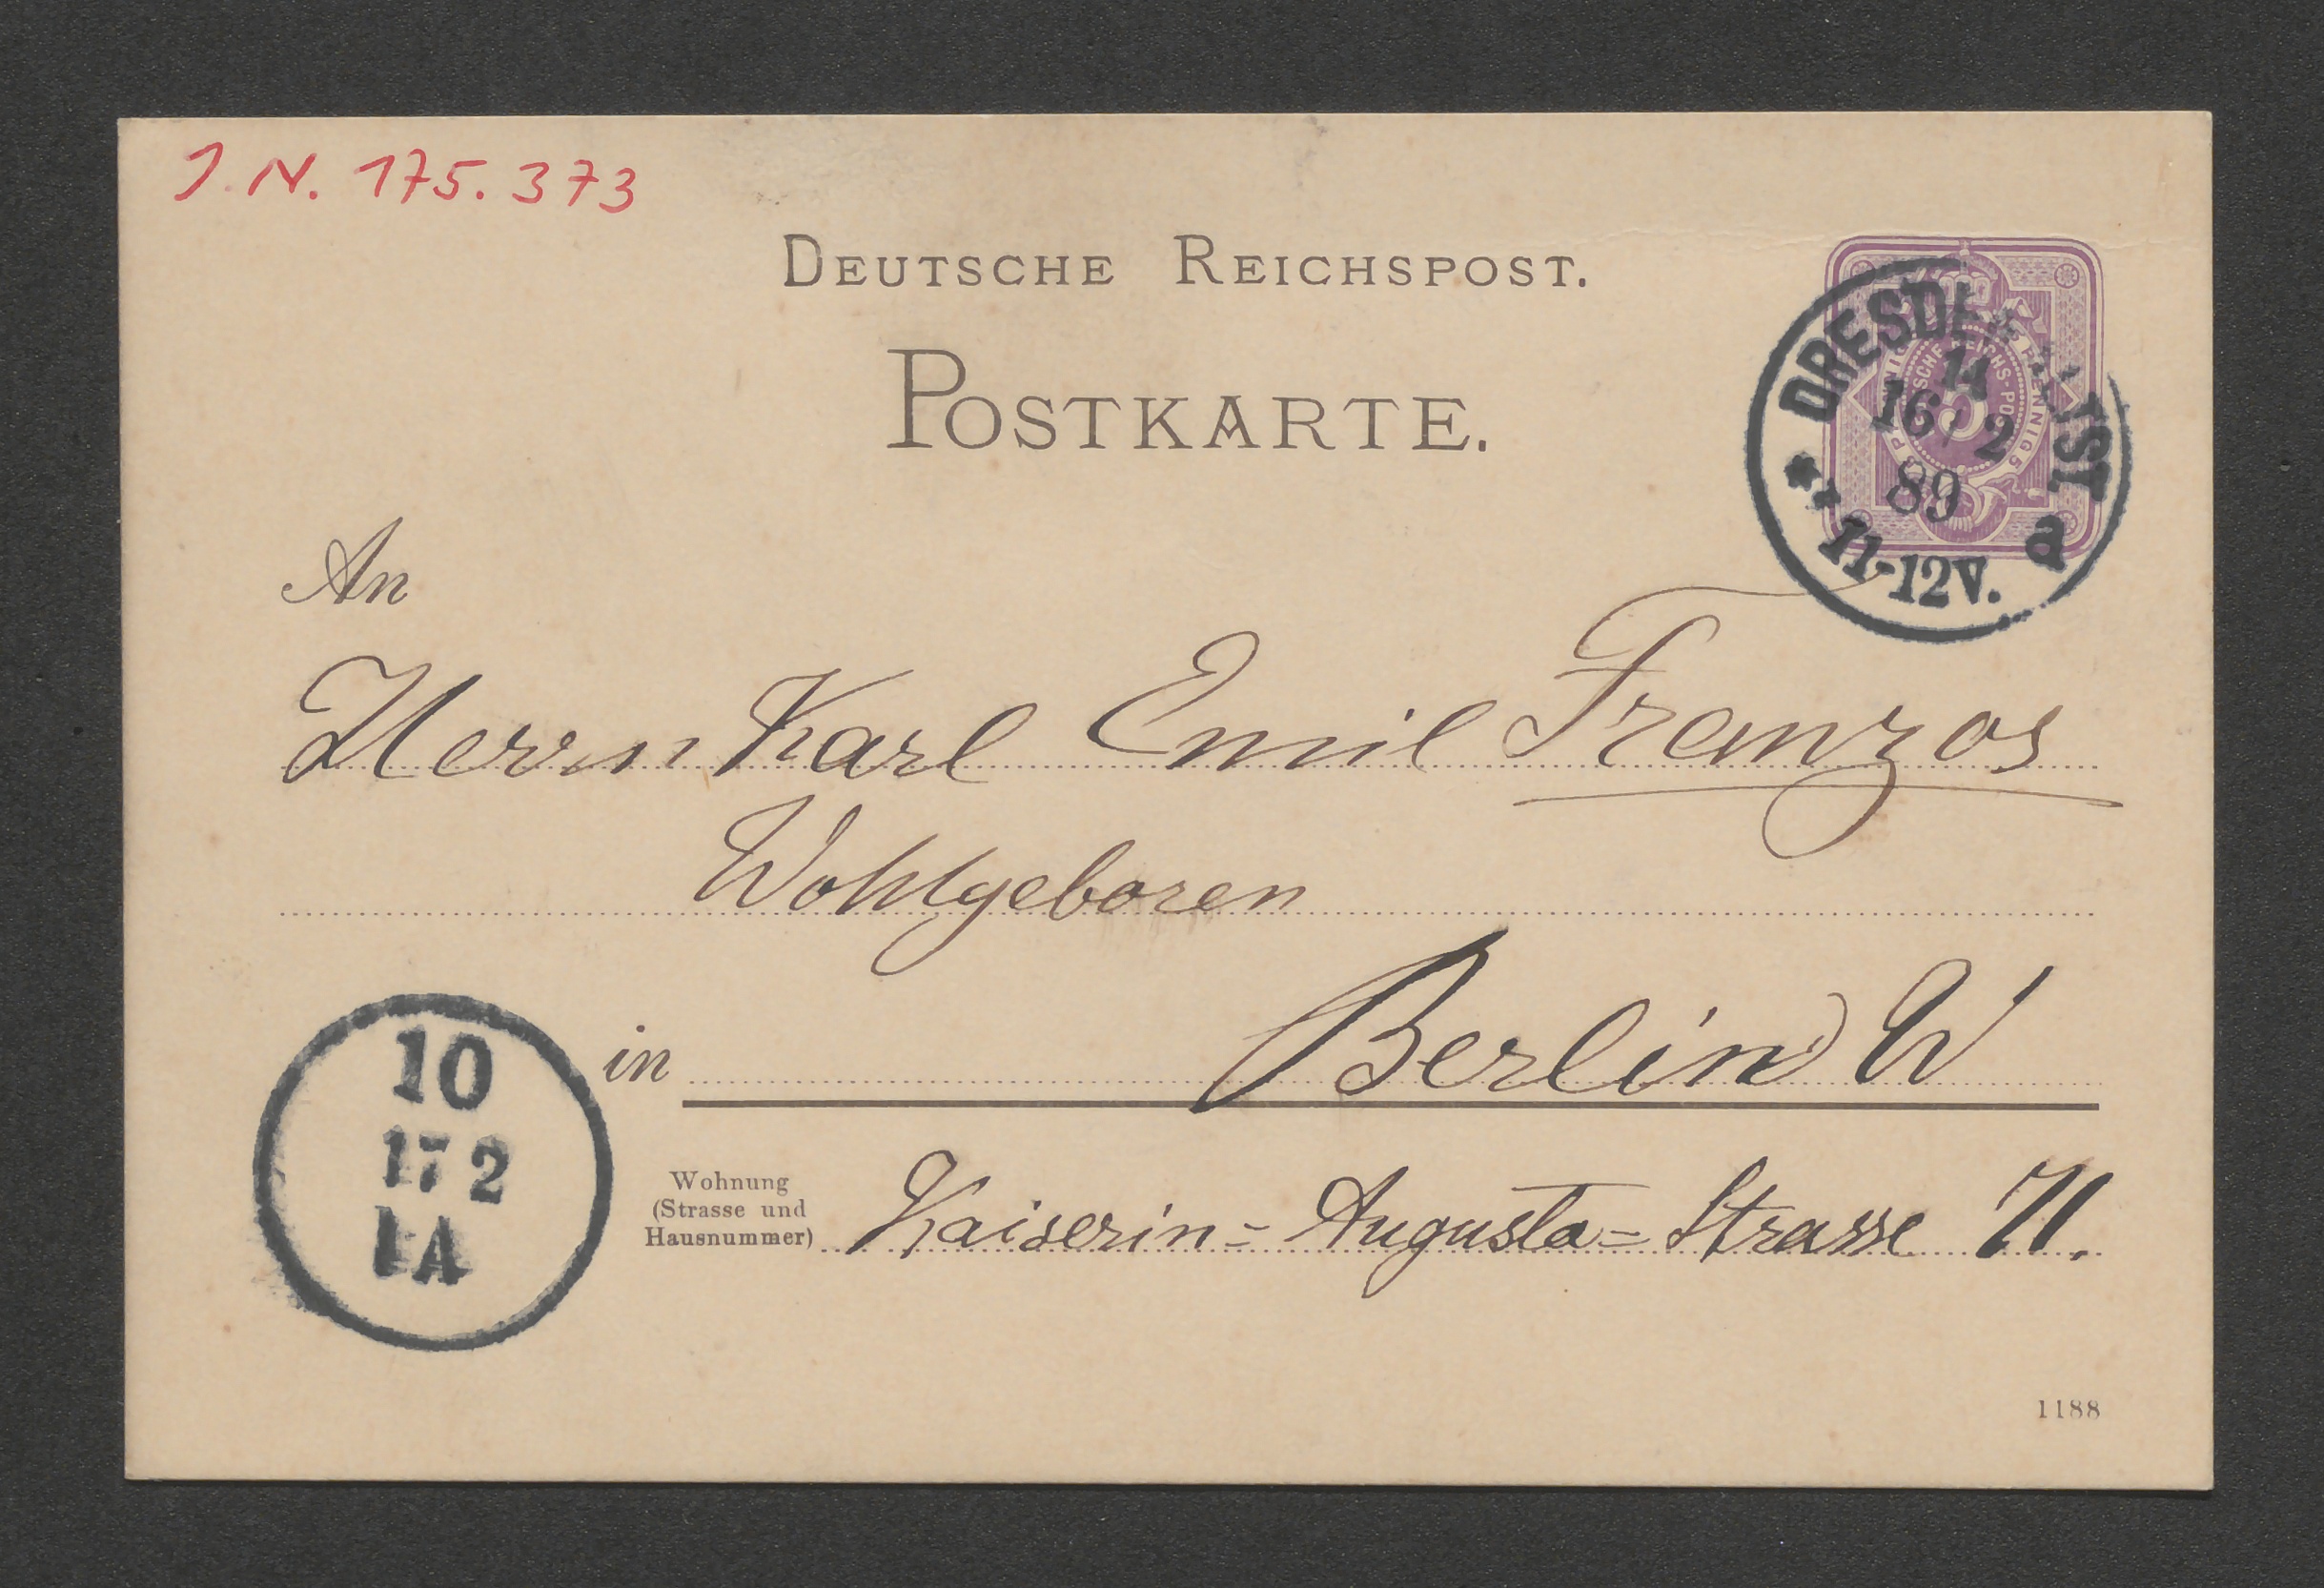 J. N. 175.373
DEUTSCHE REICHSPOST.
POSTKARTE.
DRESDEN ALTST.
14
16 2
89
11-12V. a
DEUTSCHE REICHS-POST
5
PFENNIG
An
Herrn Karl Emil Franzos
Wohlgeboren
in Berlin W
Wohnung
(Strasse und
Hausnummer)
Kaiserin-Augusta-Strasse 71.
10
17 2
1A
1188